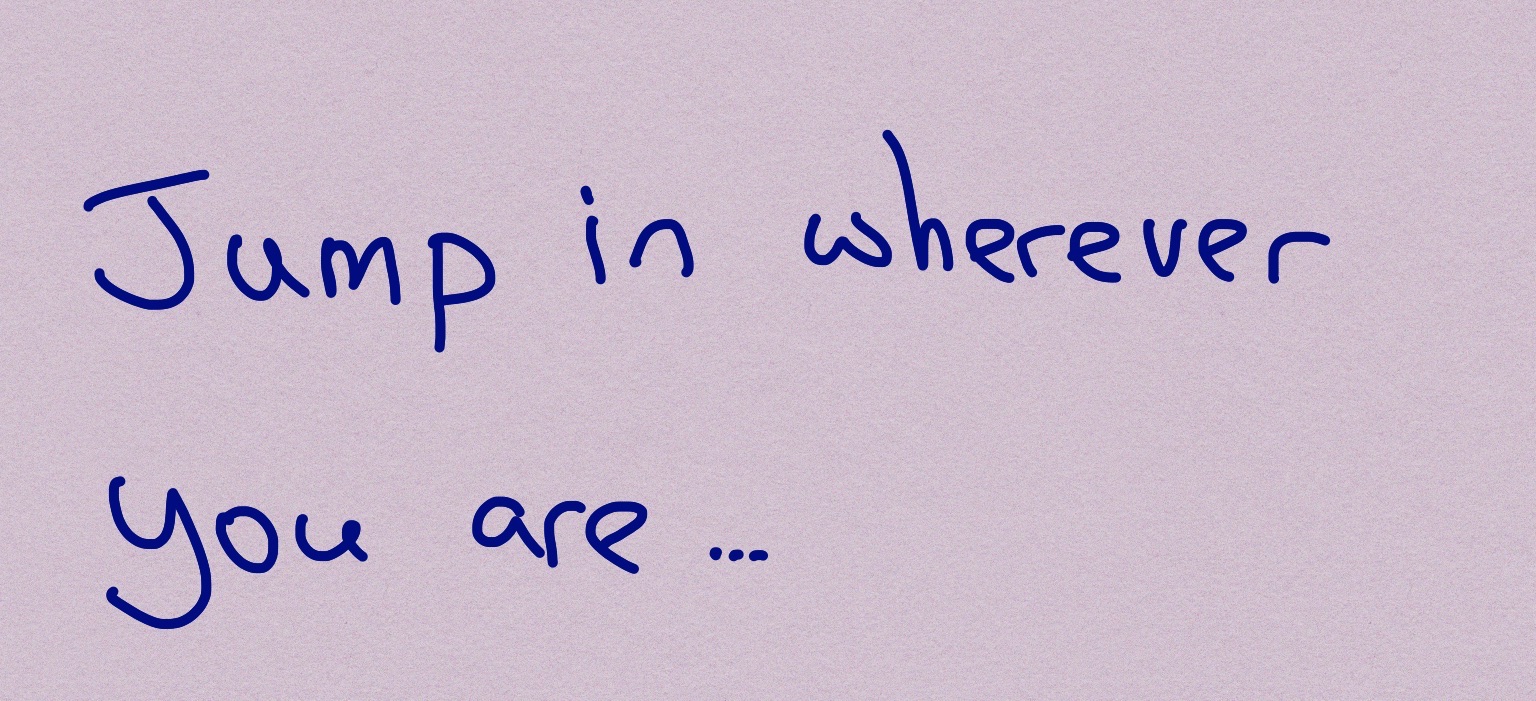 Jump in wherever
you are...